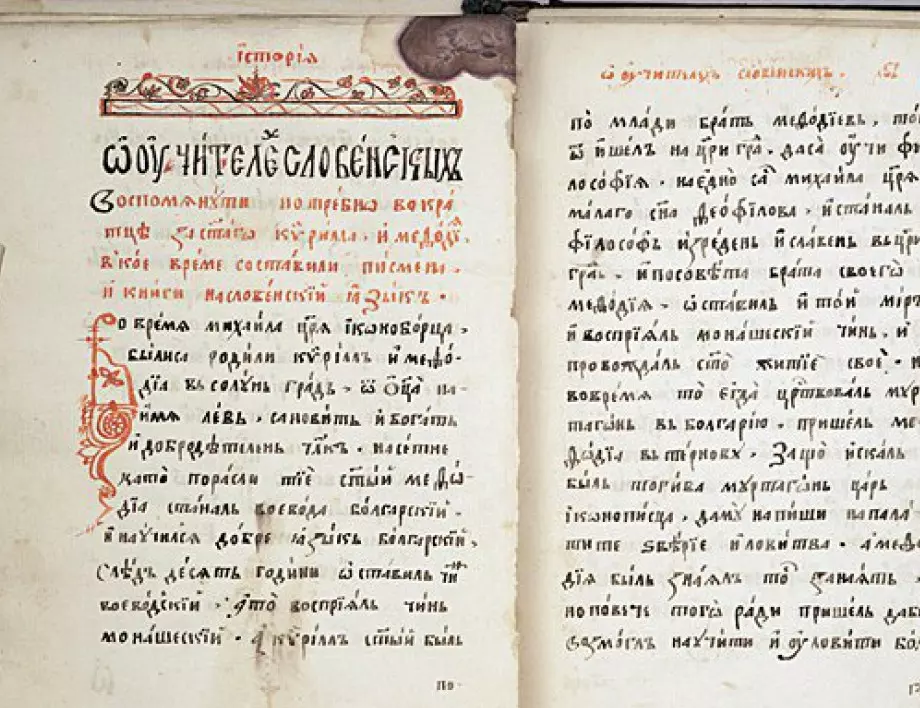 їсторїѧ
Ѡ ОУЧИТЕЛЕ СЛОВЕНСКЫХЪ
Воспомѧнꙋти потребно вокра
тце за стаго Кѷрила и Меѳодїѧ
в кое време составили писмена.
и книги на словенский ѧзыкъ.
о времѧ михаила црѧ їконоборца.
былиса родили кѷриллъ и меѳо-
дїа вь солꙋнь градъ. ѿ оца на-
имѧ левь. сановить и богать
и добродѣтелень чл҃къ. насетне
като порасли тїе ст҃ый меѳѡ-
дїа становаль воевода болгарский.
и научилсѧ добре ѧзыкь болгарский.
слѣдъ десѧть години ѡставиль чи
воеводский. что восприѧль чинь
монашеский. а кѷриллъ ст҃ый быль
по-
ѡ оучителехъ словѣнскихъ.
по млади брать меѳодїевь, той
ѿишель на цригра, даса оучи фи
лософїѧ. наедно са михаила црѧ
малаго сна Деофилова. и станаль
философъ изредень и славень вь цри
гра. и посовѣта брата своего
меѳодїѧ. ѡставиль и той миръ
и восприѧль монашеский чинь. и
провождаль сто житїе свое. н
вовремѧ то егда црствоваль мур
тагонь вь болгарїю. пришель ме
ѳодїа вь терновꙋ. Защо искаль
быль тогива муртагонь царь
їконописца. дамꙋ напиши на пала
тите ѕвѣрїе и ловитва. а меѳо
дїѧ быль знаѧль то занаѧть
но повече того ради пришель даб
возмогль научити и оуловити бо